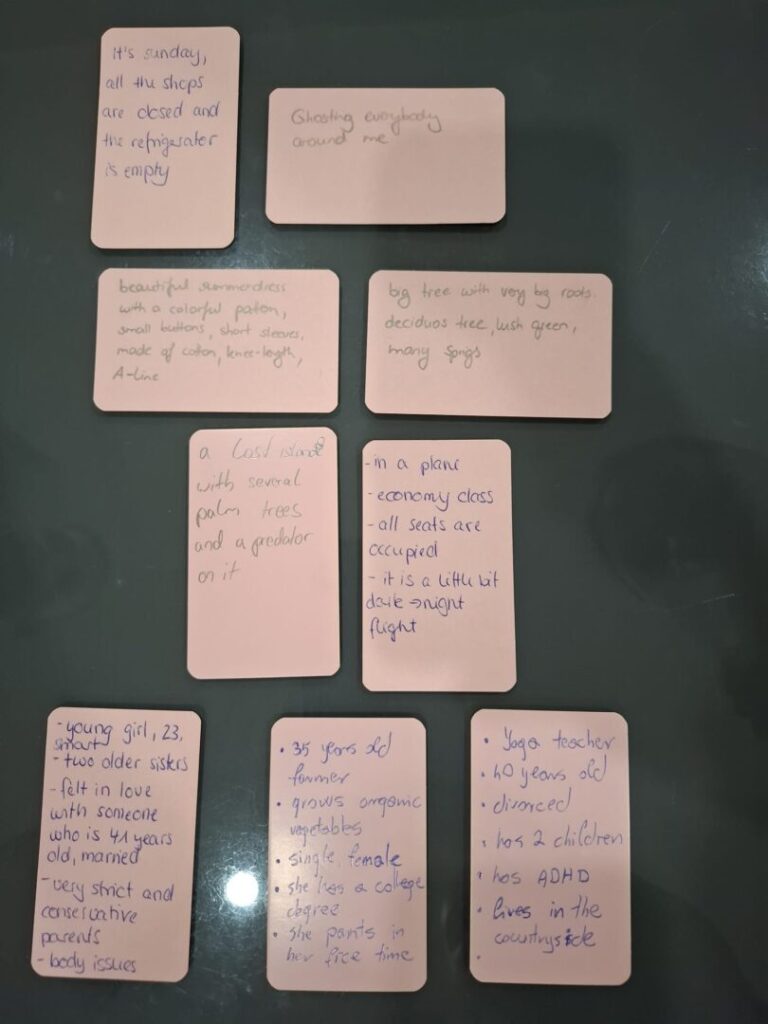 it's sunday,
all the shops
are closed and
the refrigerator
is empty
Ghosting everybody
around me
beautiful summerdress
with a colorful patern,
small buttons, short sleeves,
made of coton, knee-length,
A-line
big tree with very big roots.
deciduos tree, lush green,
many
a Lost island
with several
palm trees
and a predator
on it
- in a plane
- economy class
- all seats are
occupied
- it is a little bit
dark → night
flight
- young girl, 23,
smart
- two older sisters
- felt in love
with someone
who is 41 years
old, married
- very strict and
conservative
parents
- body issues
• 35 years old
farmer
• grows organic
vegetables
• single, female
• she has a college
degree
• she paints in
her free time
• Yoga teacher
• 40 years old
• divorced
• has 2 children
• has ADHD
• lives in the
countryside
•